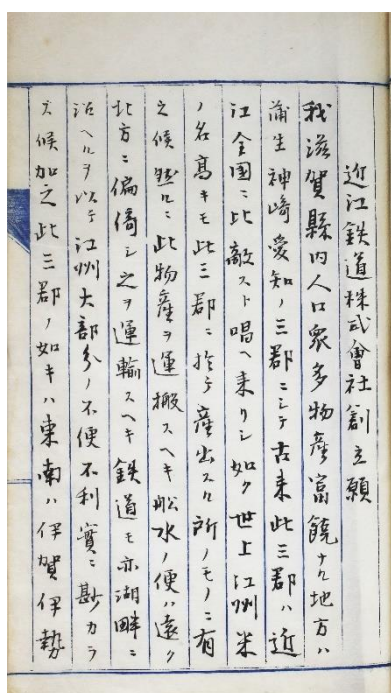 近江鉄道株式會社創立願
我滋賀縣内人口衆多物産富饒ナル地方ハ
蒲生神崎愛知ノ三郡ニシテ古来此三郡ハ近
江全国ニ比敵スト唱ヘ来リシ如ク世上江州米
ノ名高キモ此三郡ニ於テ産出スル所ノモノニ有
之候然ルニ此物産ヲ運搬スヘキ舩水ノ便ハ遠ク
北方ニ偏倚シ之ヲ運輸スヘキ鉄道モ亦湖畔ニ
沿ヘルヲ以テ江州大部分ノ不便不利實ニ尠カラ
ス候加之此三郡ノ如キハ東南ハ伊賀伊勢